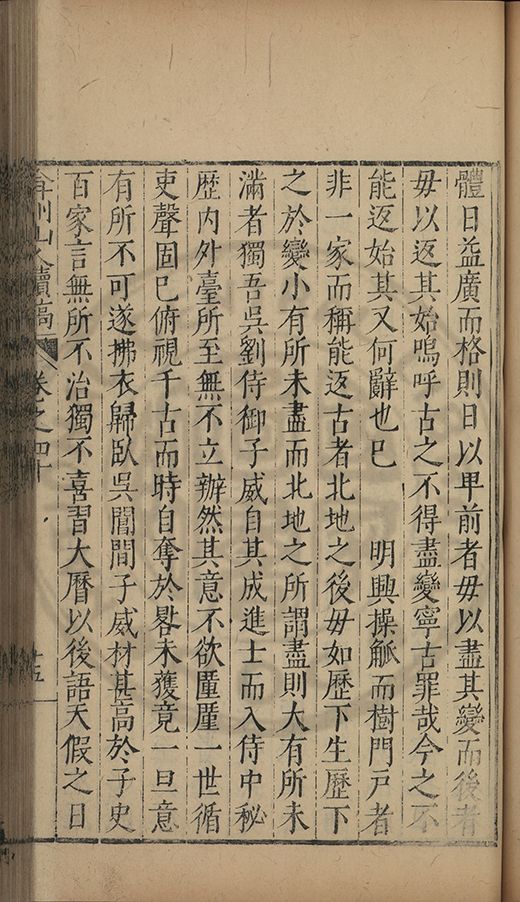 體日益廣而格則日以甲前者毋以盡其變而後者
毋以返其始嗚呼古之不得盡變寧古罪哉今之不
能返始其又何辭也巳　明興操觚而樹門戸者
非一家而稱能返古者北地之後毋如歷下生歷下
之於變小有所未盡而北地之所謂盡則大有所未
滿者獨吾吳劉侍御子威自其成進士而入侍中秘
歴內外臺所至無不立辦然其意不欲厪厪一世循
吏聲固巳俯視千古而時自奪於晷未獲竟一旦意
有所不可遂拂衣歸臥吳閶間子威材甚高於子史
百家言無所不治獨不喜習大曆以後語天假之日
弇州山人續稿　卷之四十　十五